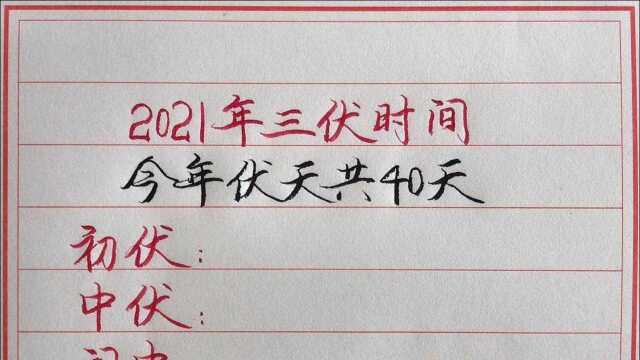 2021年三伏时间
今年伏天共40天
初伏：
中伏：